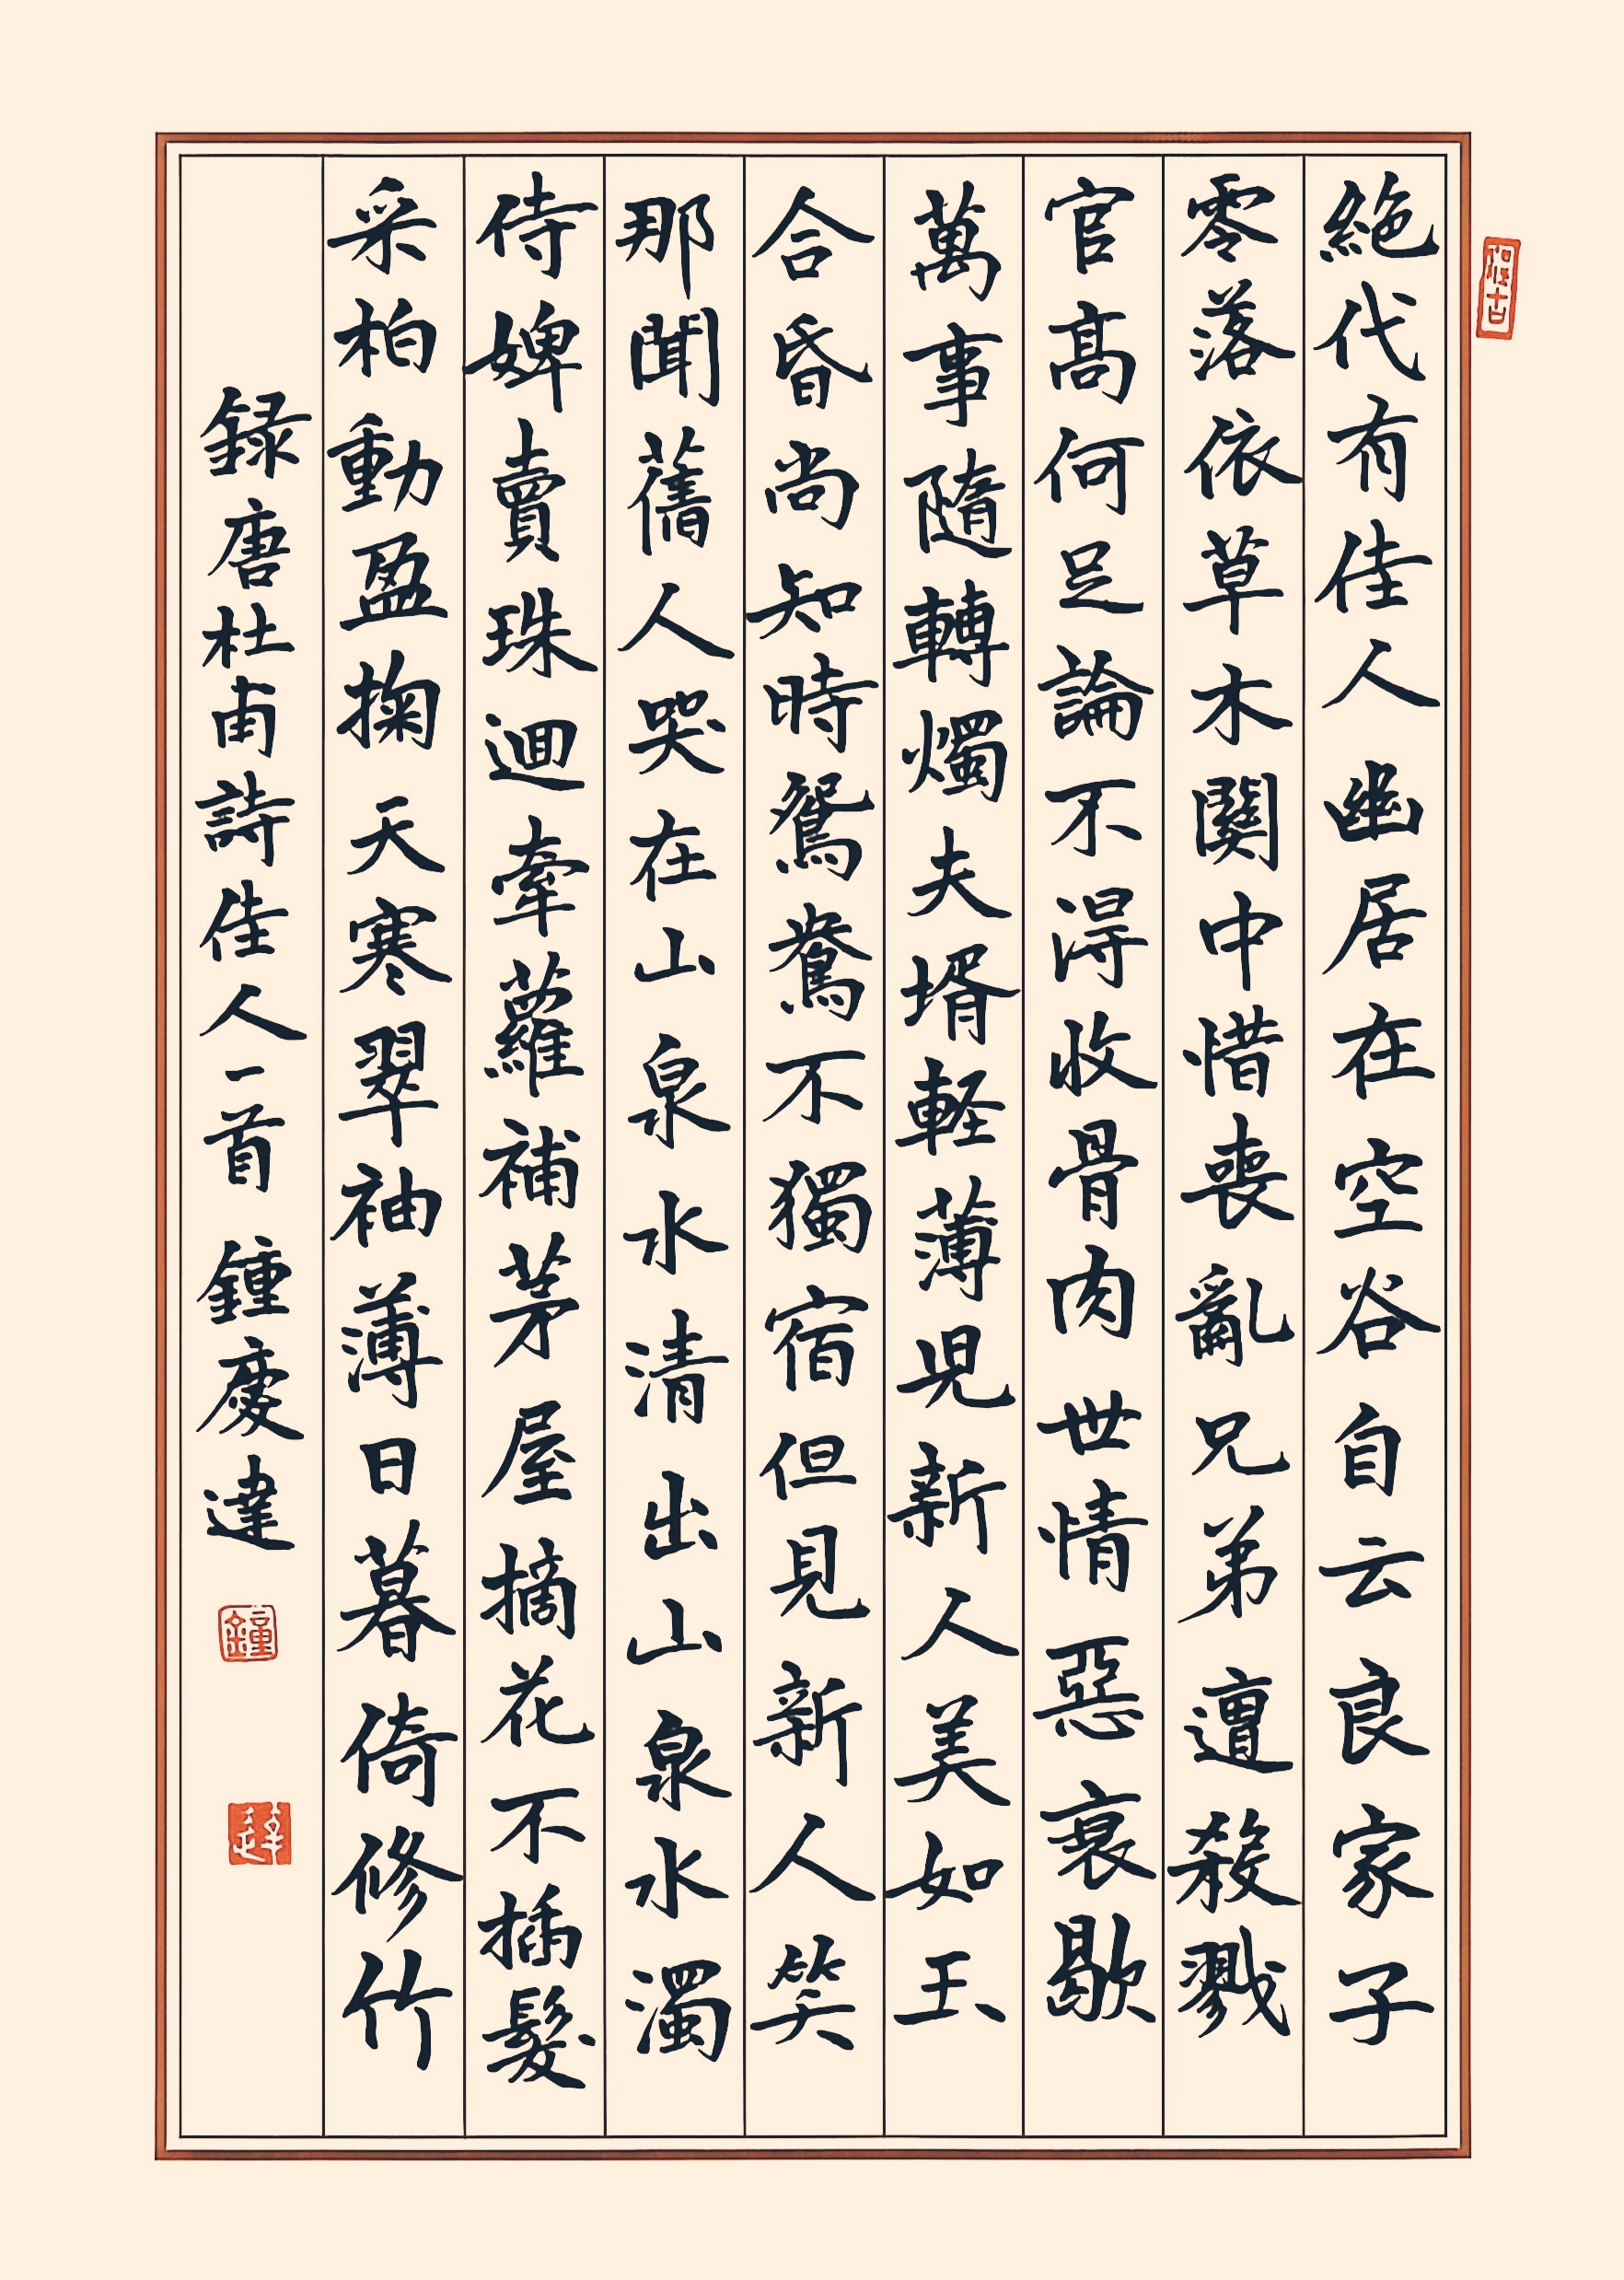 絶代有佳人幽居在空谷自云良家子
零落依草木関中惜喪亂兄弟遭殺戮
官髙何足論不得收骨肉世情惡衰歇
萬事隨轉燭夫壻軽薄児新人美如玉
合昏尚知時鴛鴦不獨宿但見新人笑
那聞舊人哭在山泉水清出山泉水濁
侍婢賣珠迴牽蘿補茅屋摘花不插髮
采柏動盈掬天寒翠袖薄日暮倚修竹
録唐杜甫詩佳人一首鍾慶達
鐘